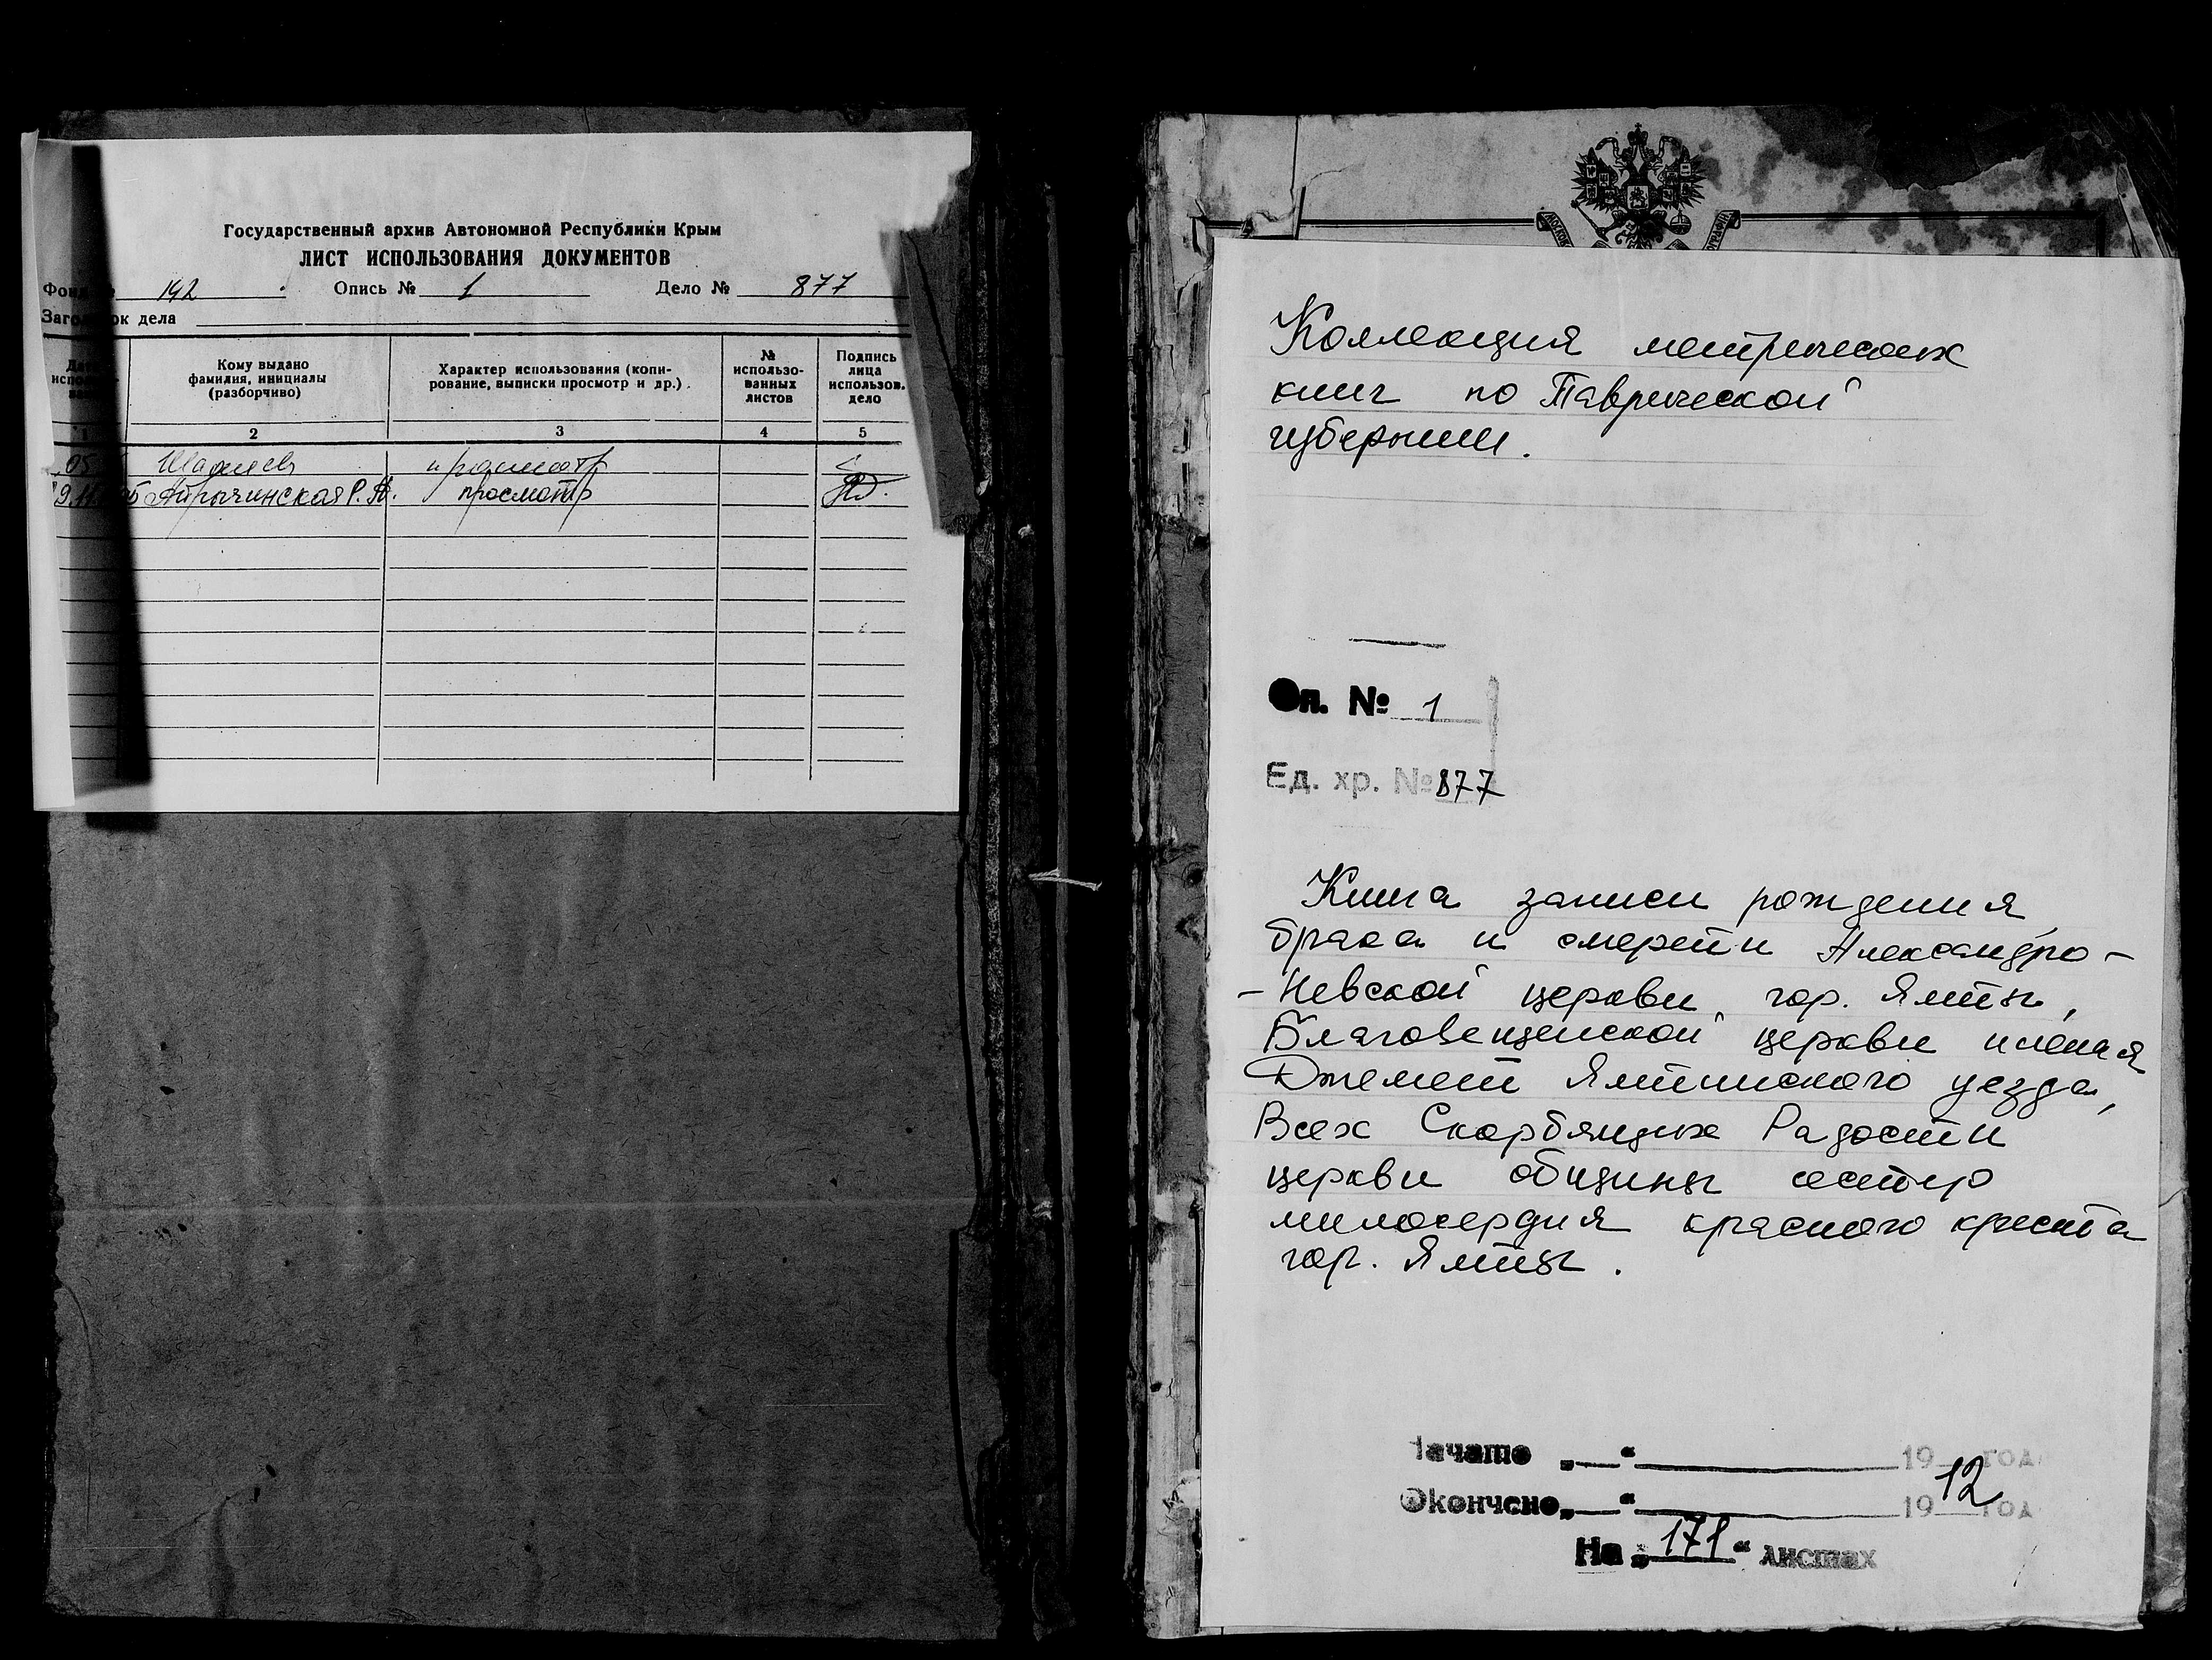 Государственный архив Автономной Республики Крым
ЛИСТ ИСПОЛЬЗОВАНИЯ ДОКУМЕНТОВ
Фонд № 142 Опись № 1 Дело № 877
Заголовок дела
Кому выдано фамилия, инициалы (разборчиво)
Характер использования (копирование, выписки просмотр и др.).
№ использованных листов
Подпись лица использов. дело
1 2 3 4 5
05 просмотр
просмотр
Коллекция метрических
книг по Таврической
губернии.
Оп. № 1
Ед. хр. № 877
Книга записи рождения,
брака и смерти Александро-
-Невской церкви гор. Ялты,
Благовещенской церкви имения
Джемет Ялтинского уезда,
Всех Скорбящих Радости
церкви общины сестер
милосердия красного креста
гор. Ялты.
Начато „ “ 19 год
Окончено „ “ 1912 год
На „171“ листах